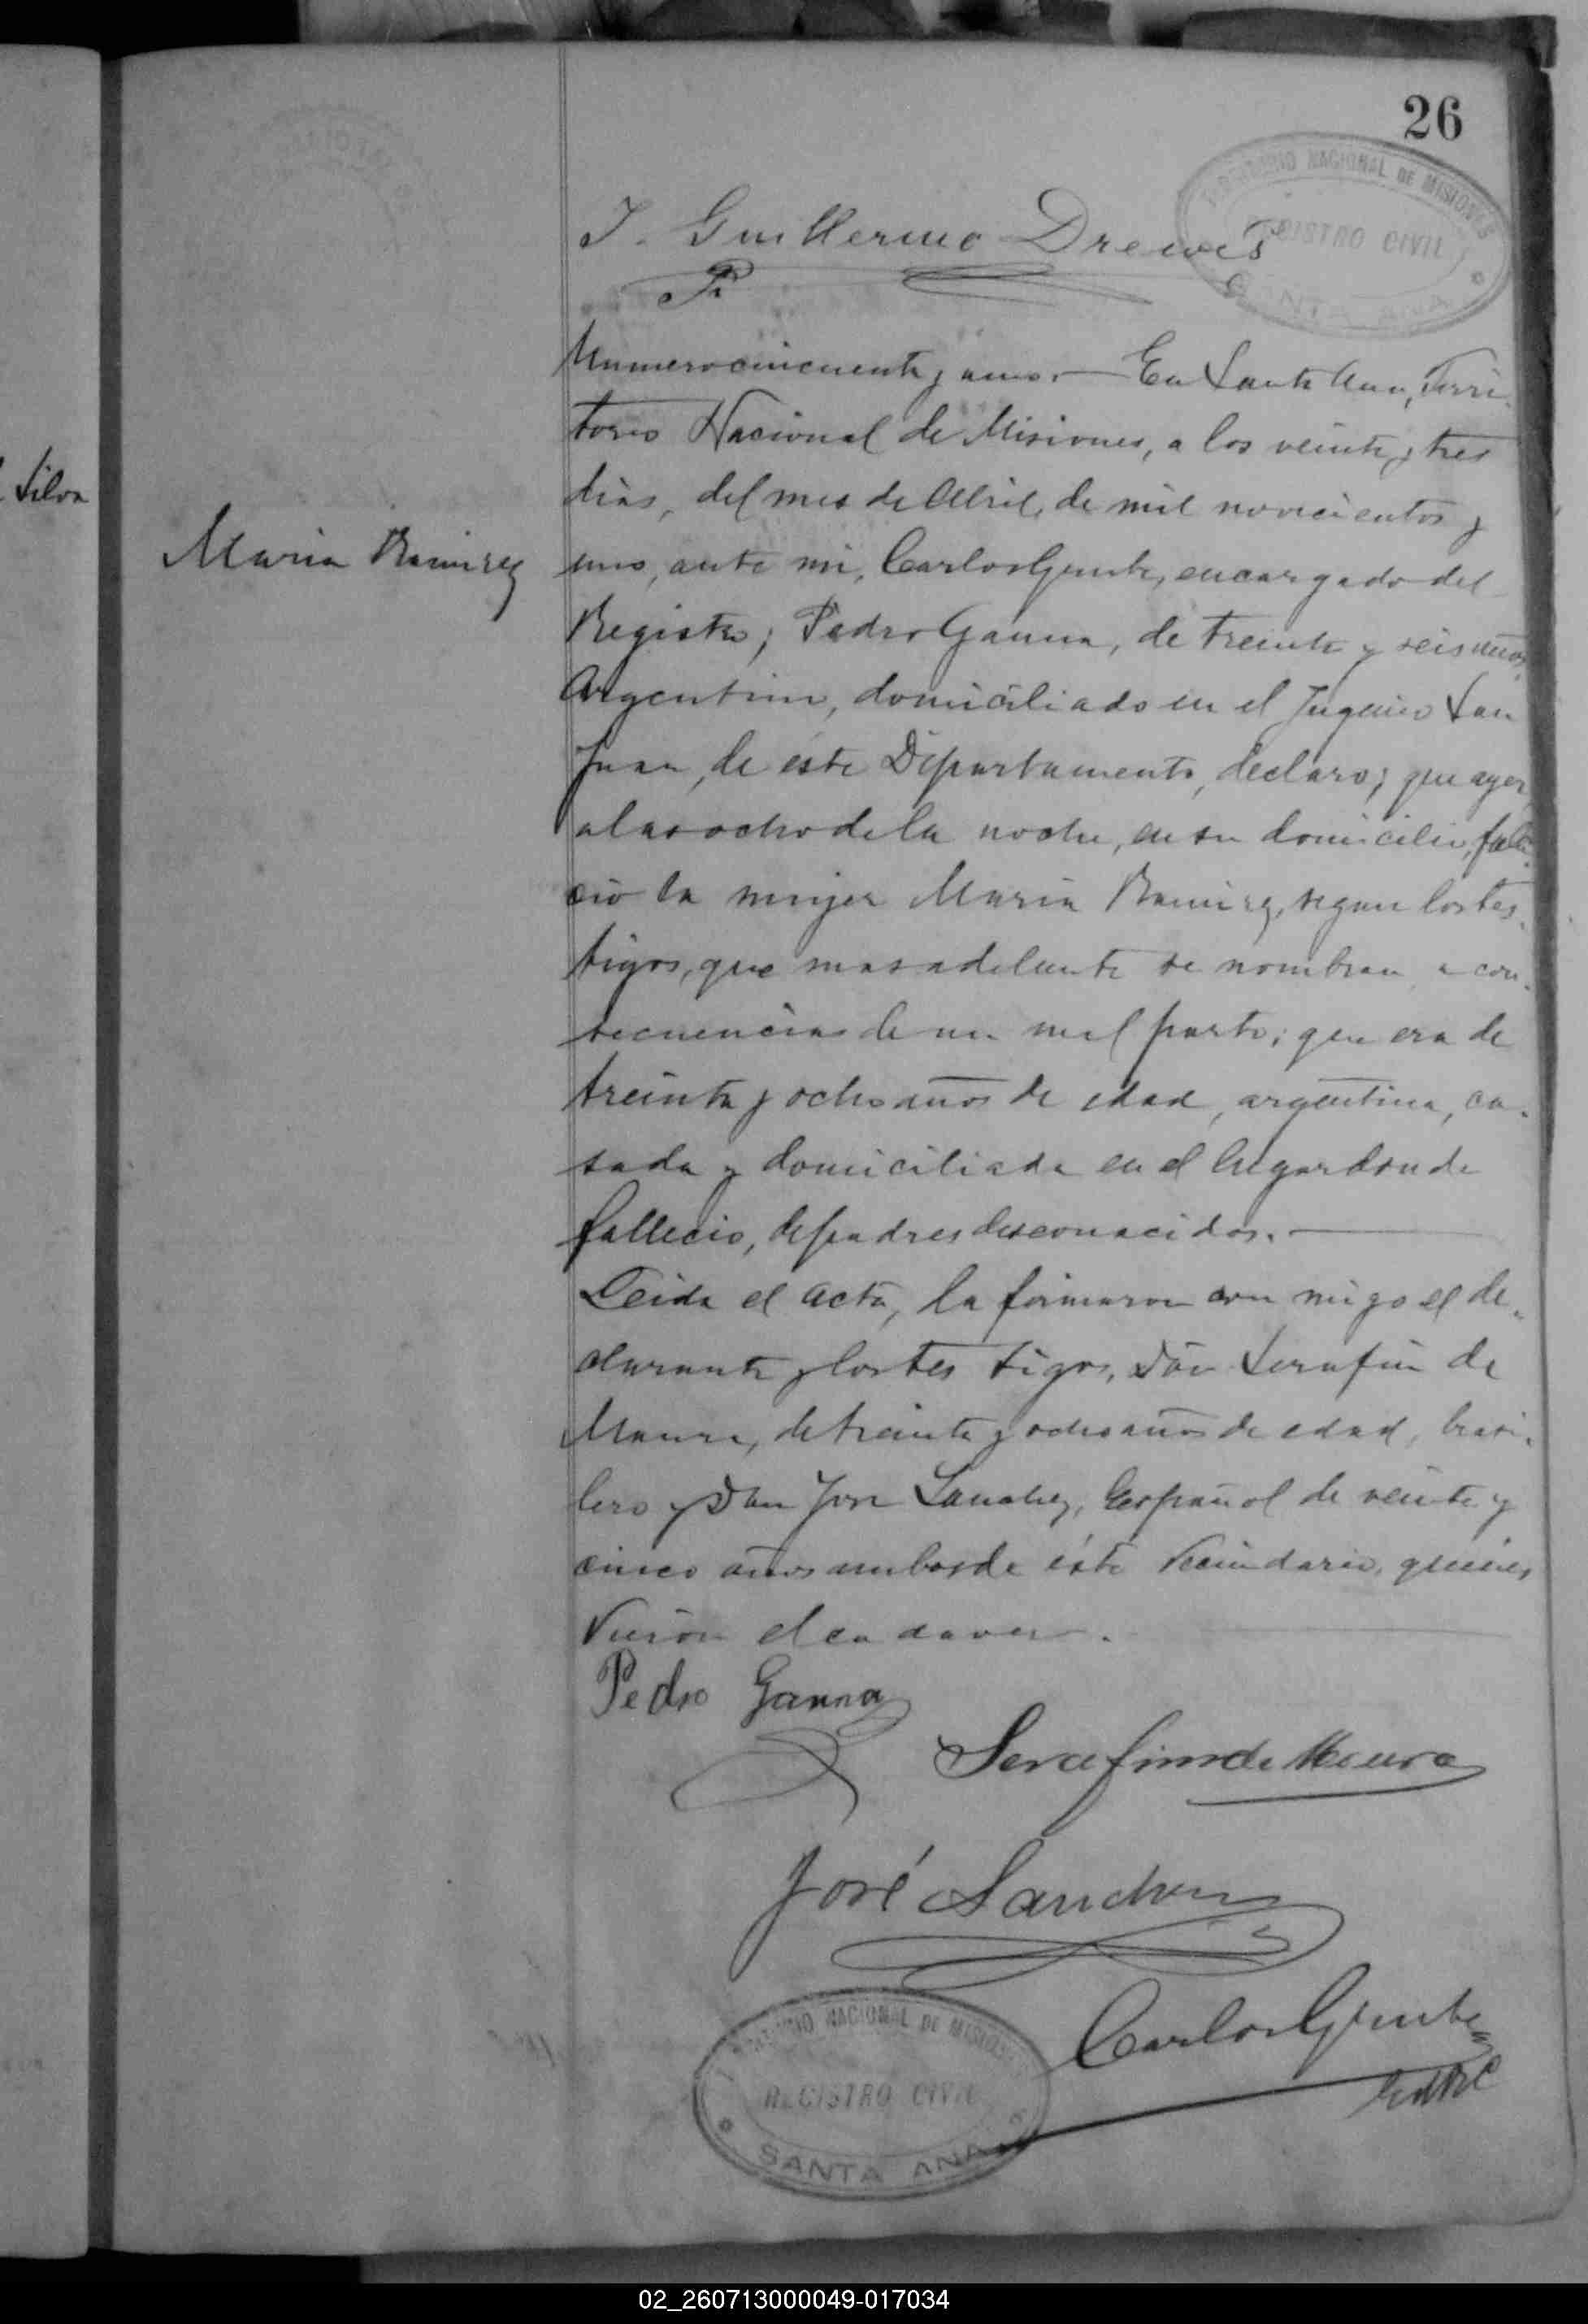 26
TERRITORIO NACIONAL DE MISIONES
REGISTRO CIVIL
SANTA ANA
J. Guillermo Drewes
Silva
Maria Ramirez
Numero cincuenta y uno.— En Santa Ana, Terri-
torio Nacional de Misiones, a los veinte y tres
dias, del mes de Abril, de mil novecientos y
uno, ante mi, Carlos Gente, encargado del
Registro; Pedro Gauna, de treinta y seis años,
Argentino, domiciliado en el Ingenio San
Juan, de este Departamento, declaro; que ayer,
a las ocho de la noche, en su domicilio, falle-
cio la mujer Maria Ramirez, segun los tes-
tigos, que mas adelante se nombran, a con-
secuencias de un mal parto; que era de
treinta y ocho años de edad, argentina, ca-
sada y domiciliada en el lugar donde
fallecio, de padres desconocidos.—
Leida el acta, la firmaron con migo el de-
clarante y los tes tigos, Don Serafin de
Maura, de treinta y ocho años de edad, brasi-
lero y Don Jose Sanchez, Español de veinte y
cinco años ambos de éste Vecindario, quienes
Vieron el cadaver.
Pedro Gauna
Serafim de Moura
José Sanchez
Carlos Gente
TERRITORIO NACIONAL DE MISIONES
REGISTRO CIVIL
SANTA ANA
02_260713000049-017034